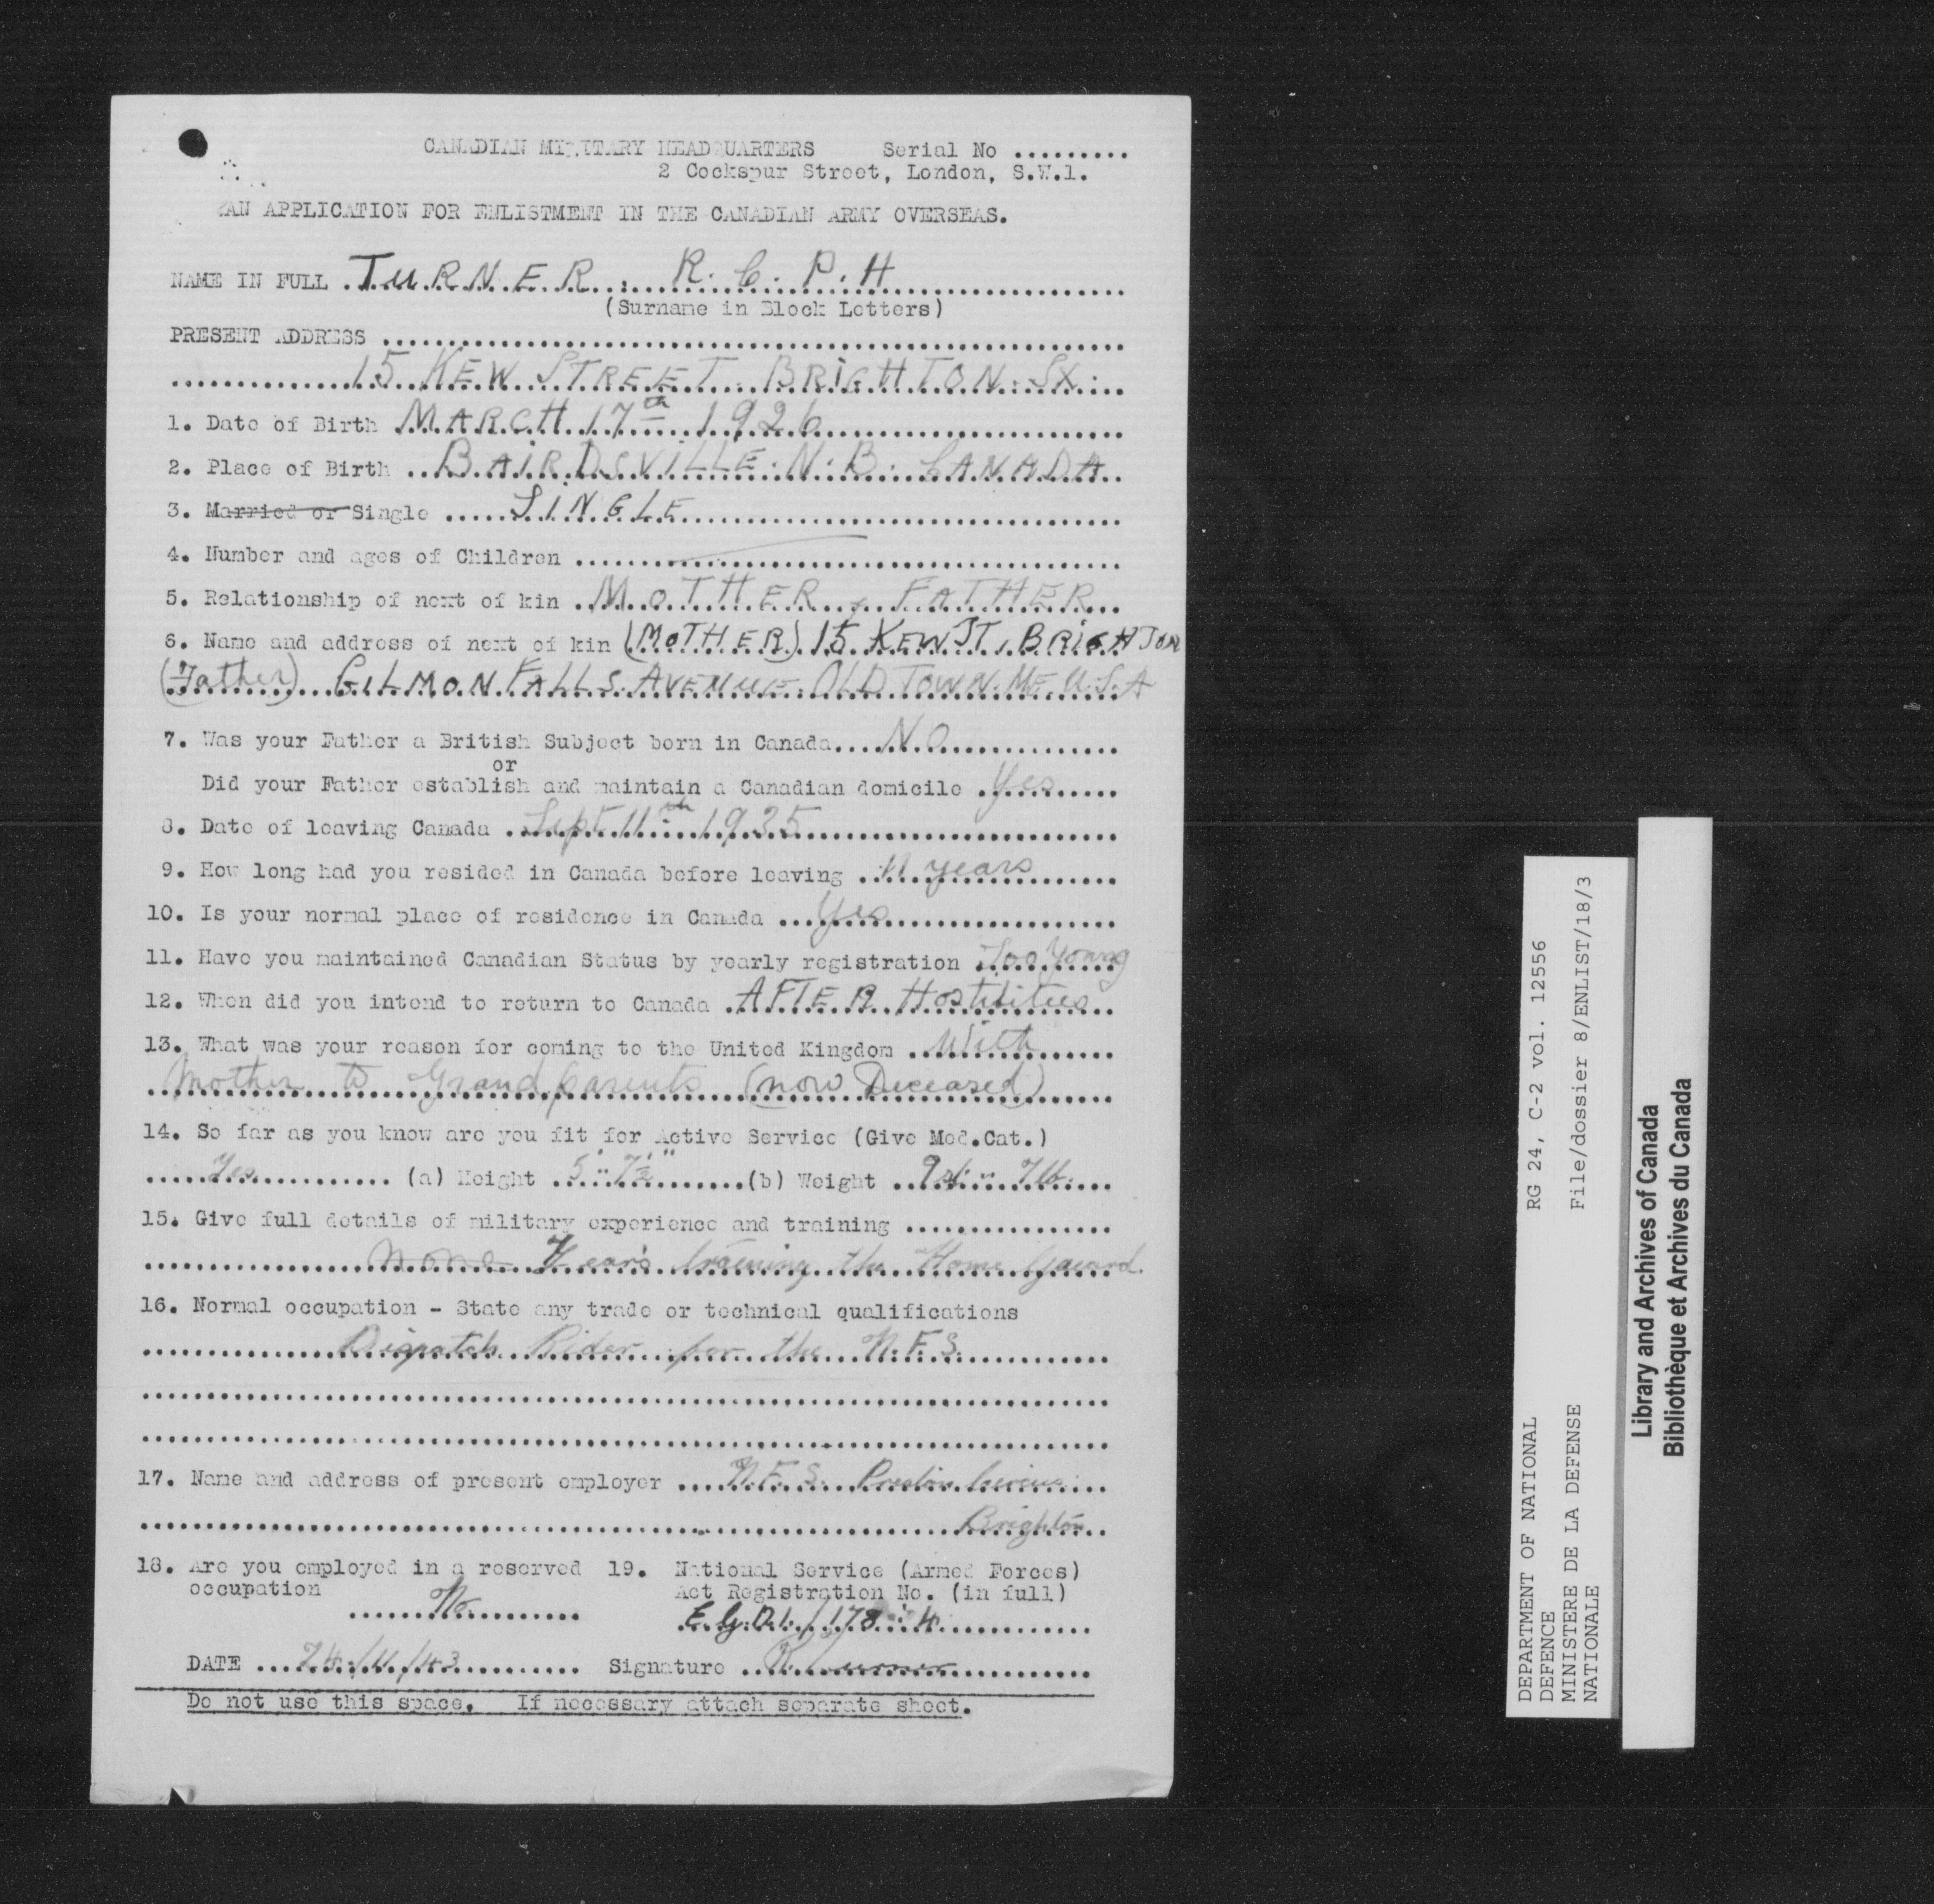 CANADIAN MILITARY HEADQUARTERS Serial No .........
2 Cockspur Street, London, S.W.1.
AN APPLICATION FOR ENLISTMENT IN THE CANADIAN ARMY OVERSEAS.
NAME IN FULL TURNER. R. C. P. H
(Surname in Block Letters)
PRESENT ADDRESS
15 KEW STREET BRIGHTON. SX.
1. Date of Birth MARCH 17th 1926
2. Place of Birth BAIRDSVILLE. N. B. CANADA
3. Married or Single SINGLE
4. Number and ages of Children
5. Relationship of next of kin MOTHER, FATHER
6. Name and address of next of kin (MOTHER) 15 KEW ST, BRIGHTON
(Father) GILMON FALLS AVENUE OLD TOWN. ME. U.S.A
7. Was your Father a British Subject born in Canada NO
or
Did your Father establish and maintain a Canadian domicile Yes
8. Date of leaving Canada Sept 11th 1935
9. How long had you resided in Canada before leaving years
10. Is your normal place of residence in Canada Yes
11. Have you maintained Canadian Status by yearly registration Too Young
12. When did you intend to return to Canada AFTER Hostilities
13. What was your reason for coming to the United Kingdom With
Mother to Grand parents (now Deceased)
14. So far as you know are you fit for Active Service (Give Med.Cat.)
Yes (a) Height 5' 7½" (b) Weight 9st 7lb.
15. Give full details of military experience and training
none Years training the Home Gaurd.
16. Normal occupation - State any trade or technical qualifications
Dispatch Rider for the N.F.S.
17. Name and address of present employer N.F.S. Preston Circus
Brighton
18. Are you employed in a reserved 19. National Service (Armed Forces)
occupation Act Registration No. (in full)
No E.G.D.1./178 4
DATE 24/11/43 Signature R Turner
Do not use this space. If necessary attach separate sheet.
DEPARTMENT OF NATIONAL RG 24, C-2 vol. 12556
DEFENCE
MINISTERE DE LA DEFENSE File/dossier 8/ENLIST/18/3
NATIONALE
Library and Archives of Canada
Bibliothèque et Archives du Canada